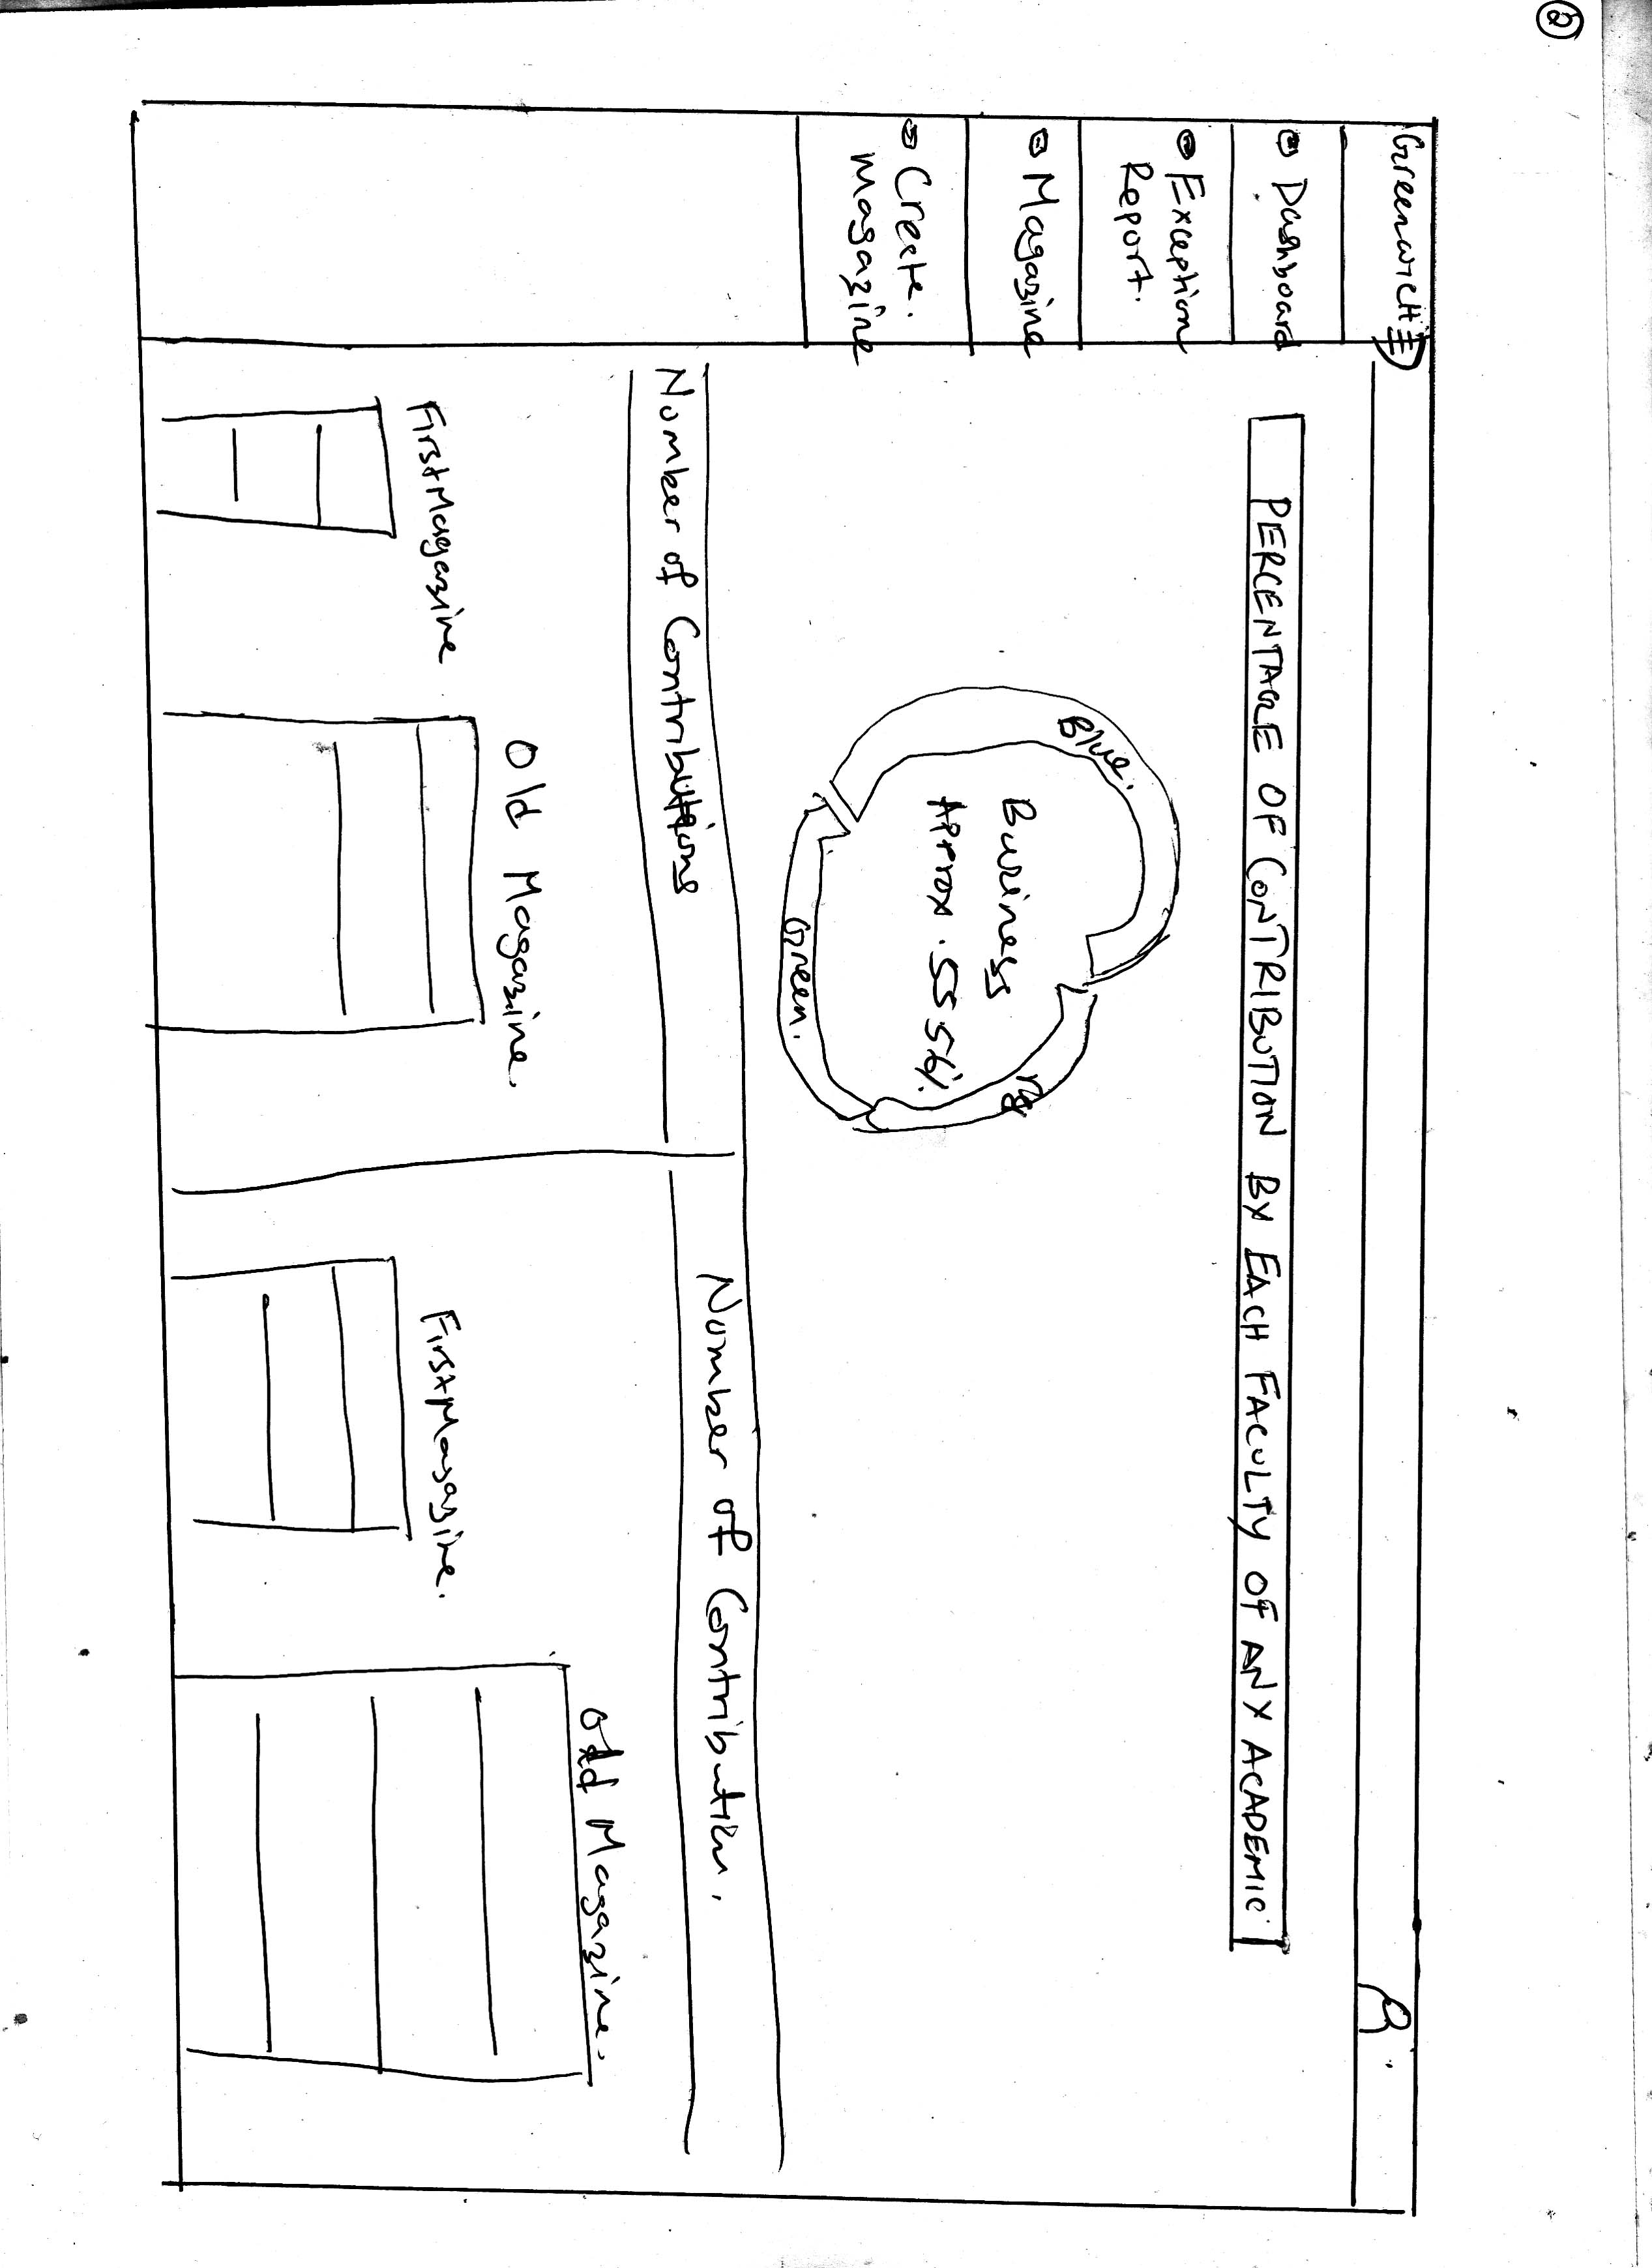 2
GreenwicH
Dashboard
Exception
Report.
Magazine
Create.
magazine
PERCENTAGE OF CONTRIBUTION BY EACH FACULTY OF ANY ACADEMIC
Blue.
Business
Approx. 55 56%.
Green.
Number of Contributions
Number of Contribution.
First Magazine
Old Magazine.
First Magazine.
Old Magazine.